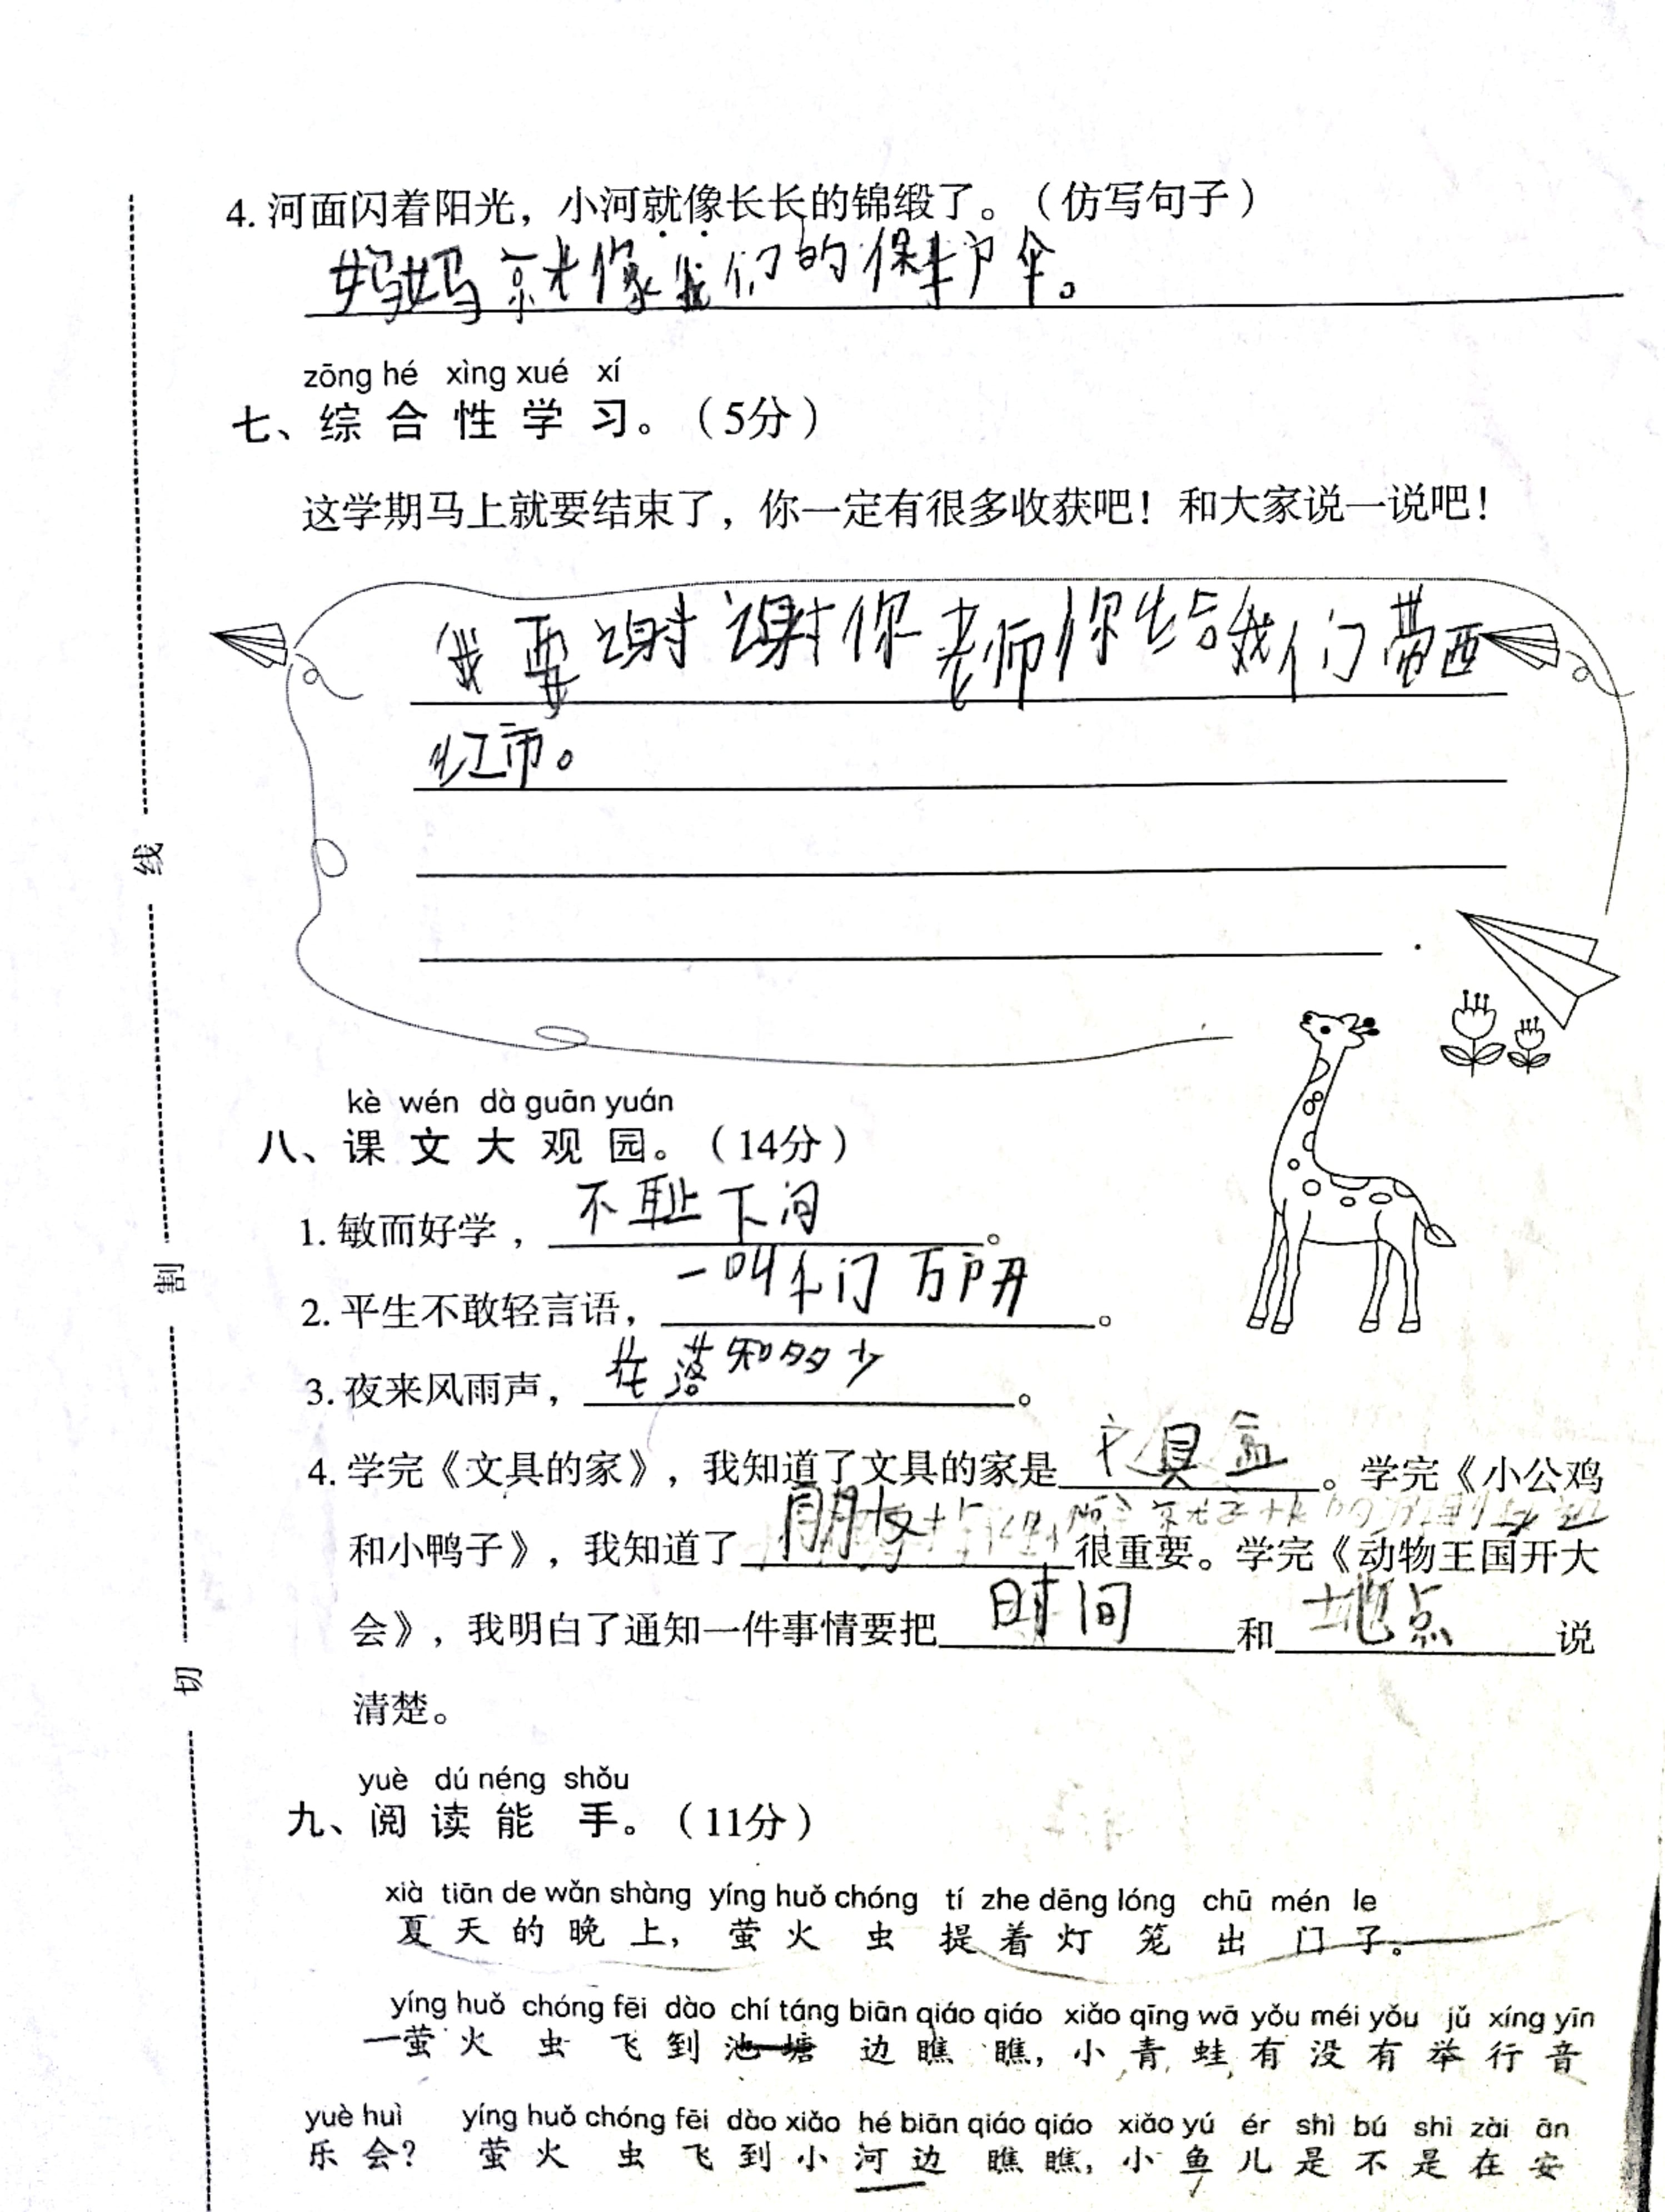 4. 河面闪着阳光，小河就像长长的锦缎了。（仿写句子）
妈妈就像我们的保护伞。
zōng hé xìng xué xí
七、综合性学习。（5分）
这学期马上就要结束了，你一定有很多收获吧！和大家说一说吧！
我要谢谢你老师你给我们带西
红市。
线
kè wén dà guān yuán
八、课文大观园。（14分）
1. 敏而好学，不耻下问。
制
2. 平生不敢轻言语，一叫千门万户开。
3. 夜来风雨声，花落知多少。
4. 学完《文具的家》，我知道了文具的家是文具盒。学完《小公鸡
和小鸭子》，我知道了朋友很重要。学完《动物王国开大
会》，我明白了通知一件事情要把时间和地点说
切
清楚。
yuè dú néng shǒu
九、阅读能手。（11分）
xià tiān de wǎn shàng yíng huǒ chóng tí zhe dēng lóng chū mén le
夏天的晚上，萤火虫提着灯笼出门了。
yíng huǒ chóng fēi dào chí táng biān qiáo qiáo xiǎo qīng wā yǒu méi yǒu jǔ xíng yīn
萤火虫飞到池塘边瞧瞧，小青蛙有没有举行音
yuè huì yíng huǒ chóng fēi dào xiǎo hé biān qiáo qiáo xiǎo yú ér shì bú shì zài ān
乐会？萤火虫飞到小河边瞧瞧，小鱼儿是不是在安